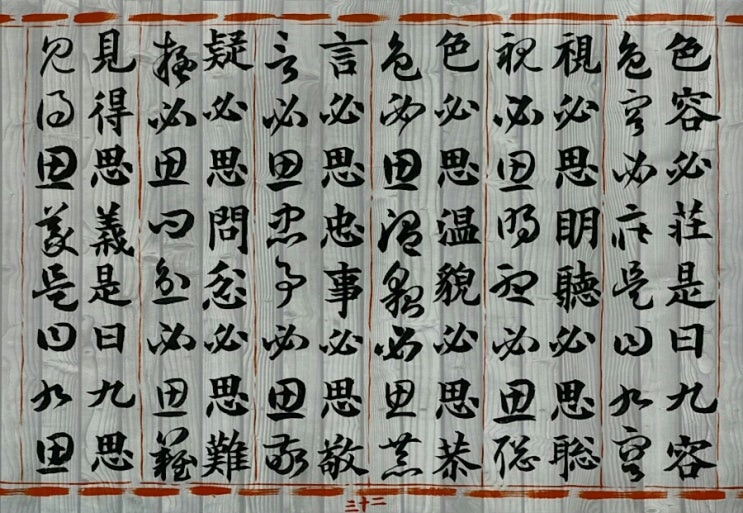 色容必莊是曰九容
色容必莊是曰九容
視必思明聽必思聡
視必思明聽必思聡
色必思温貌必思恭
色必思温貌必思恭
言必思忠事必思敬
言必思忠事必思敬
疑必思問忿必思難
疑必思問忿必思難
見得思義是曰九思
見得思義是曰九思
二十三